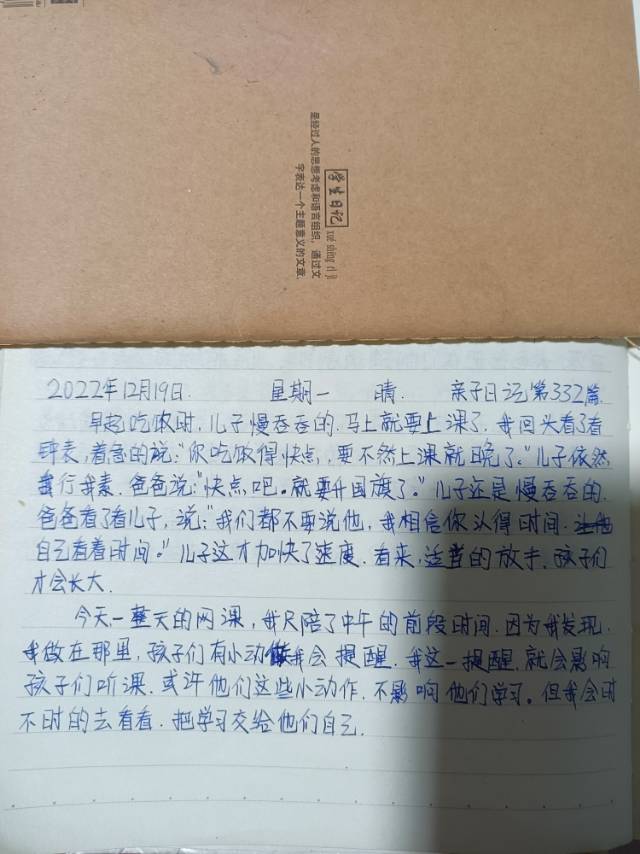 学生日记
xué shēng rì jì
是经过人的思想考虑和语言组织，通过文
字表达一个主题意义的文章.
2022年12月19日. 星期一 晴. 亲子日记第332篇
早起吃饭时,儿子慢吞吞的.马上就要上课了.我回头看了看
钟表,着急的说:"你吃饭得快点,要不然上课就晚了。"儿子依然
我行我素.爸爸说:"快点吧。就要升国旗了。"儿子还是慢吞吞的.
爸爸看了看儿子,说:"我们都不要说他,我相信你认得时间.
自己看着时间。"儿子这才加快了速度.看来,适当的放手.孩子们
才会长大.
今天一整天的网课,我只陪了中午的前段时间.因为我发现.
我做在那里,孩子们有小动做我会提醒.我这一提醒.就会影响
孩子们听课.或许他们这些小动作.不影响他们学习。但我会时
不时的去看看.把学习交给他们自己.